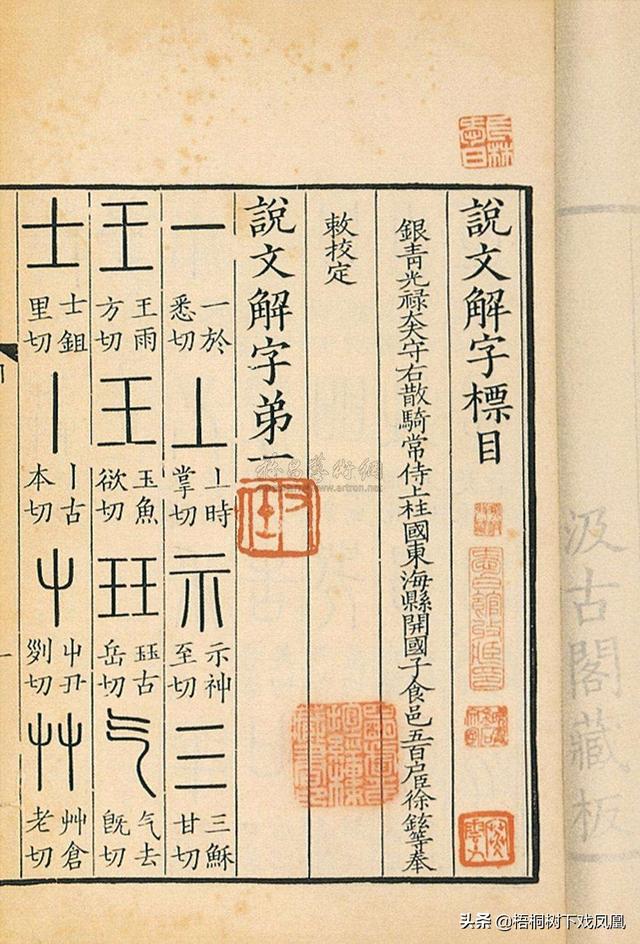 汲古閣藏板
說文解字標目
銀青光祿大夫守右散騎常侍上柱國東海縣開國子食邑五百戶臣徐鉉等奉
敕校定
說文解字弟一
一 一於悉切 丄 丄時掌切 示 示神至切 三 三穌甘切
王 王雨方切 玉 玉魚欲切 玨 玨古岳切 气 气去旣切
士 士鉏里切 丨 丨古本切 屮 屮丑列切 艸 艸倉老切
www.artron.net
头条 @梧桐树下戏凤凰